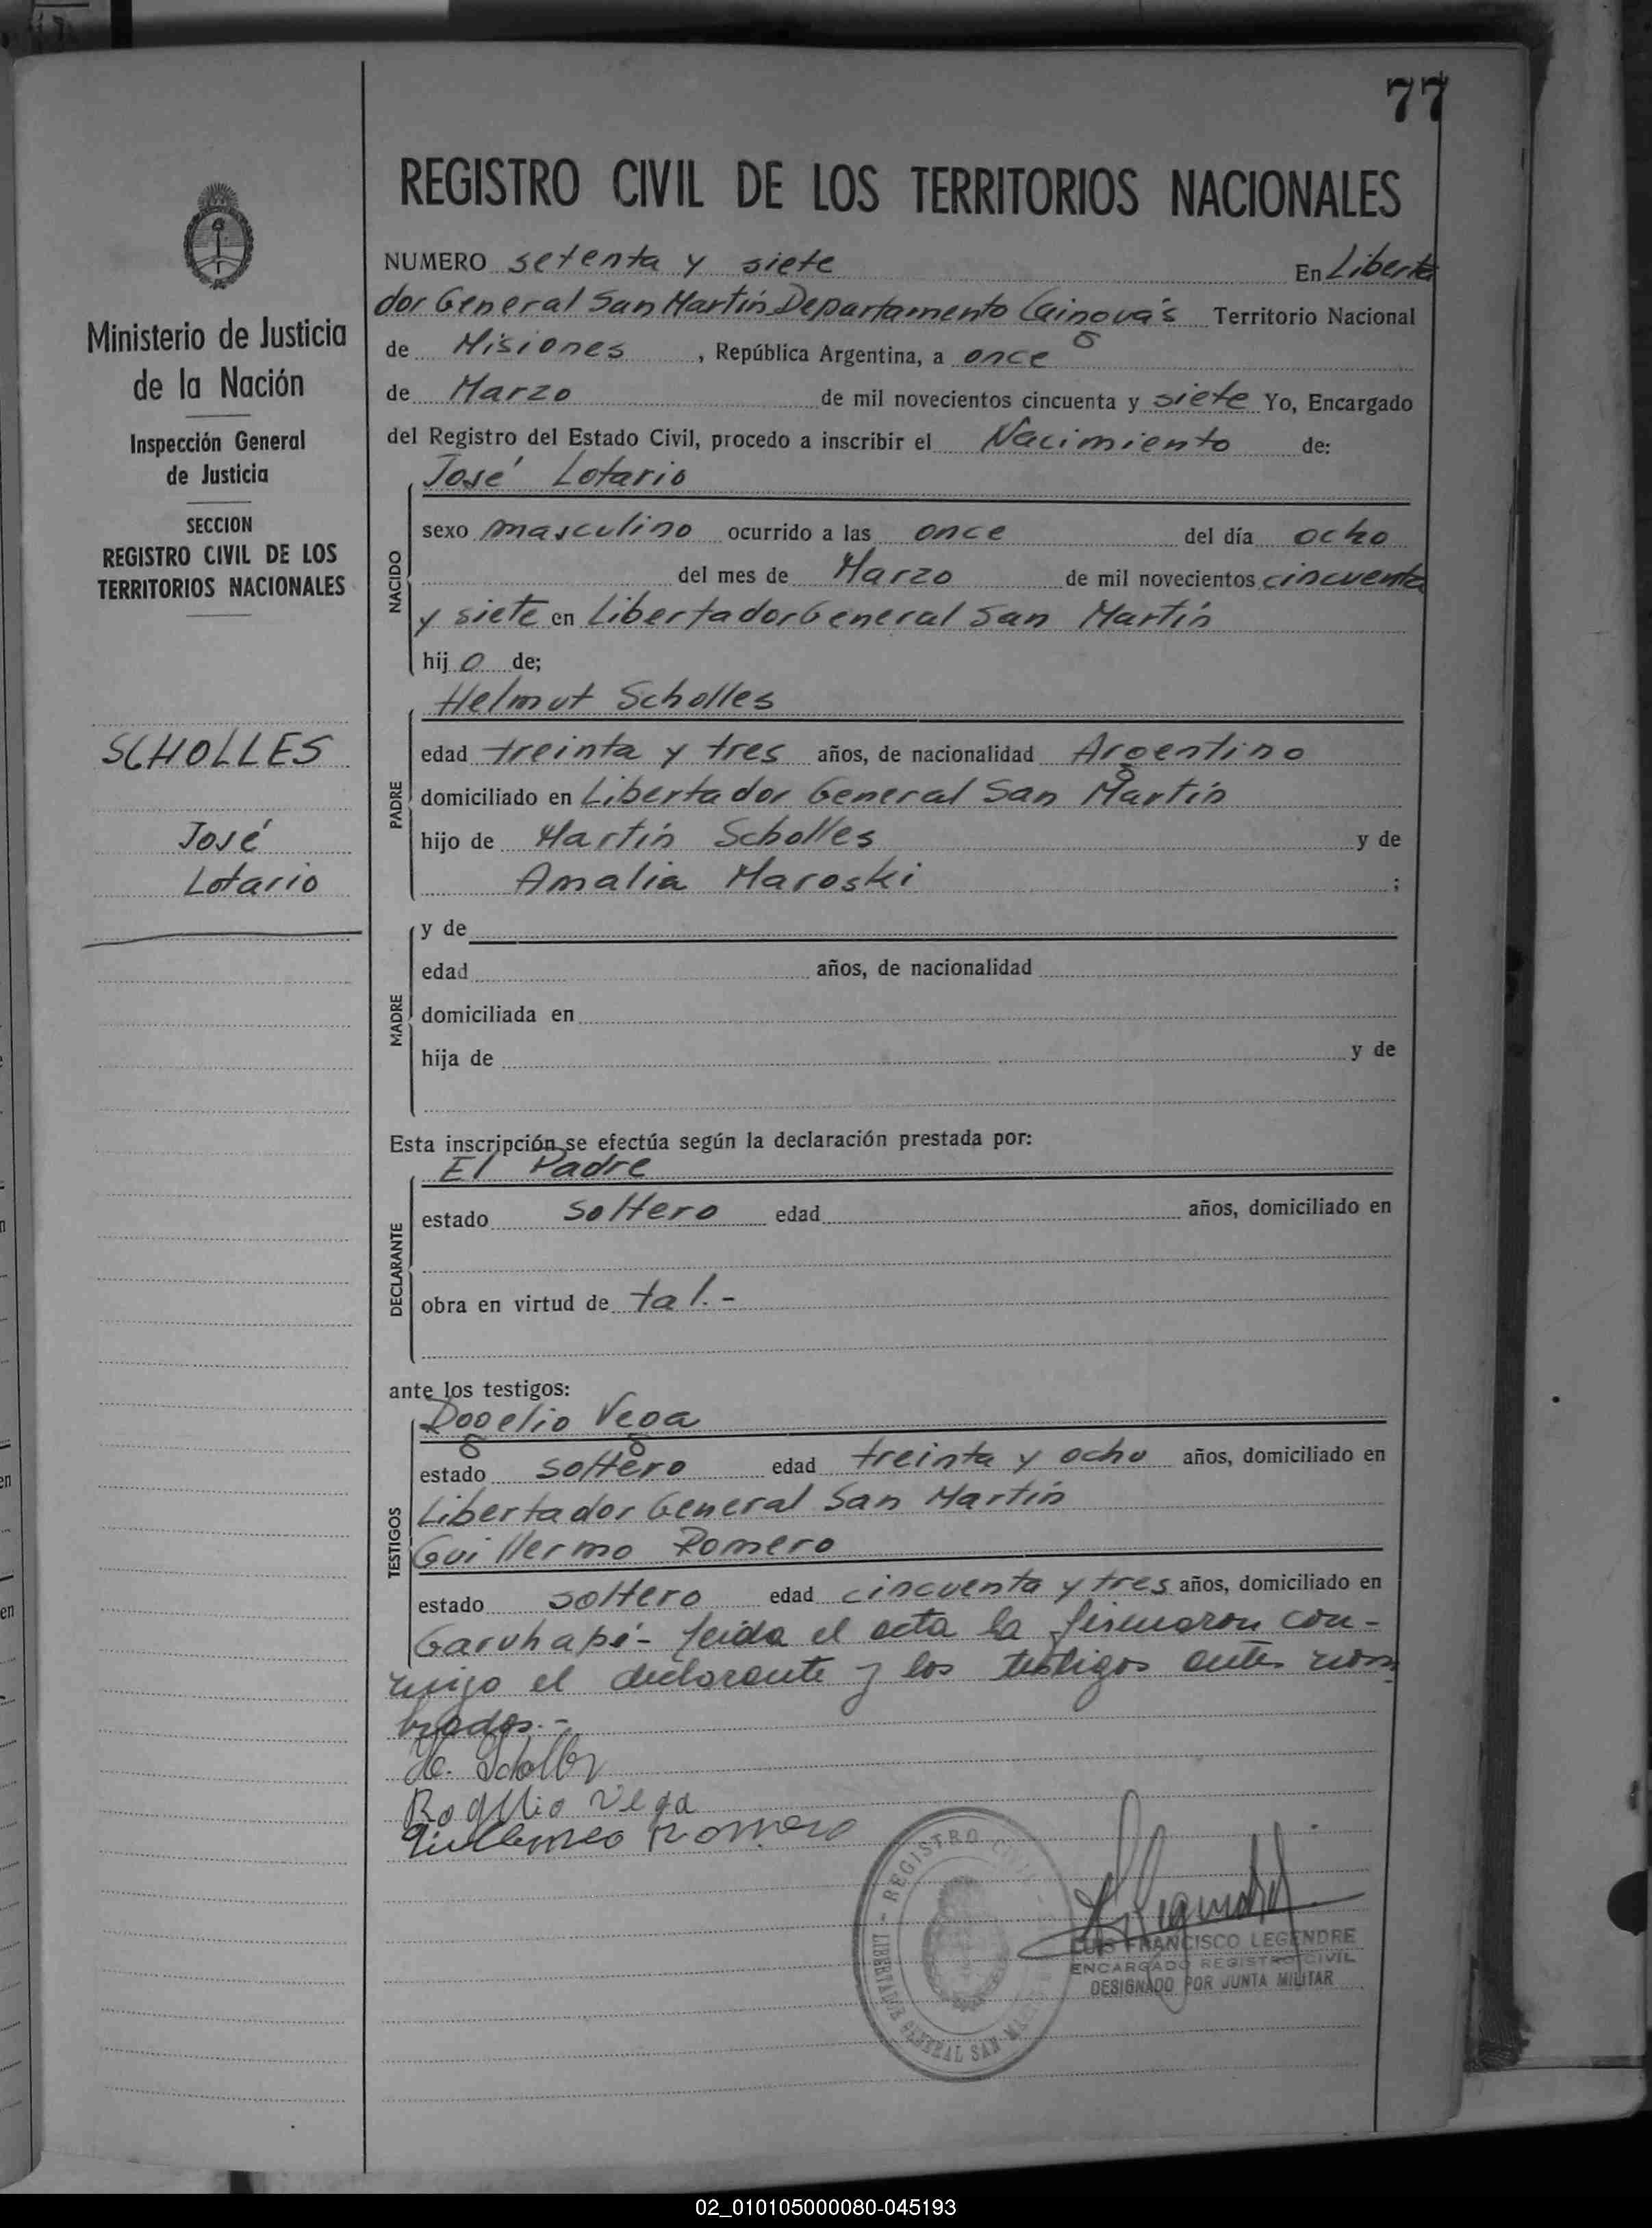 77
REGISTRO CIVIL DE LOS TERRITORIOS NACIONALES
Ministerio de Justicia
de la Nación
Inspección General
de Justicia
SECCION
REGISTRO CIVIL DE LOS
TERRITORIOS NACIONALES
SCHOLLES
José
Lotario
NUMERO setenta y siete En Liberta
dor General San Martín Departamento Cainguás Territorio Nacional
de Misiones , República Argentina, a once
de Marzo de mil novecientos cincuenta y siete Yo, Encargado
del Registro del Estado Civil, procedo a inscribir el Nacimiento de:
NACIDO
José Lotario
sexo masculino ocurrido a las once del día ocho
del mes de Marzo de mil novecientos cincuenta
y siete en Libertador General San Martín
hijo de;
PADRE
Helmut Scholles
edad treinta y tres años, de nacionalidad Argentino
domiciliado en Libertador General San Martín
hijo de Martín Scholles y de
Amalia Maroski ;
MADRE
y de
edad años, de nacionalidad
domiciliada en
hija de y de
Esta inscripción se efectúa según la declaración prestada por:
DECLARANTE
El Padre
estado soltero edad años, domiciliado en
obra en virtud de tal.-
ante los testigos:
TESTIGOS
Rogelio Vega
estado soltero edad treinta y ocho años, domiciliado en
Libertador General San Martín
Guillermo Romero
estado soltero edad cincuenta y tres años, domiciliado en
Garuhapé- leida el acta la firmaron con-
migo el declarante y los testigos antes nom
brados.-
He. Scholles
Rogelio Vega
Guillermo Romero
- REGISTRO CIVIL -
LIBERTADOR GENERAL SAN MARTIN
LUIS FRANCISCO LEGENDRE
ENCARGADO REGISTRO CIVIL
DESIGNADO POR JUNTA MILITAR
02_010105000080-045193